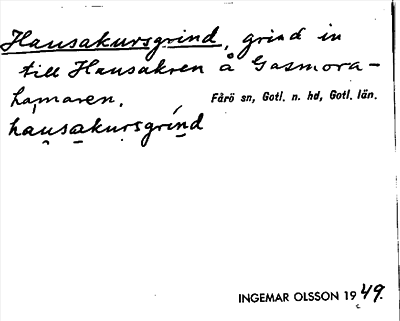 Hausakursgrind, grind in
till Hausakren å Gasmora-
hamaren.
Fårö sn, Gotl. n. hd, Gotl. län.
hausakursgrind
INGEMAR OLSSON 1949.